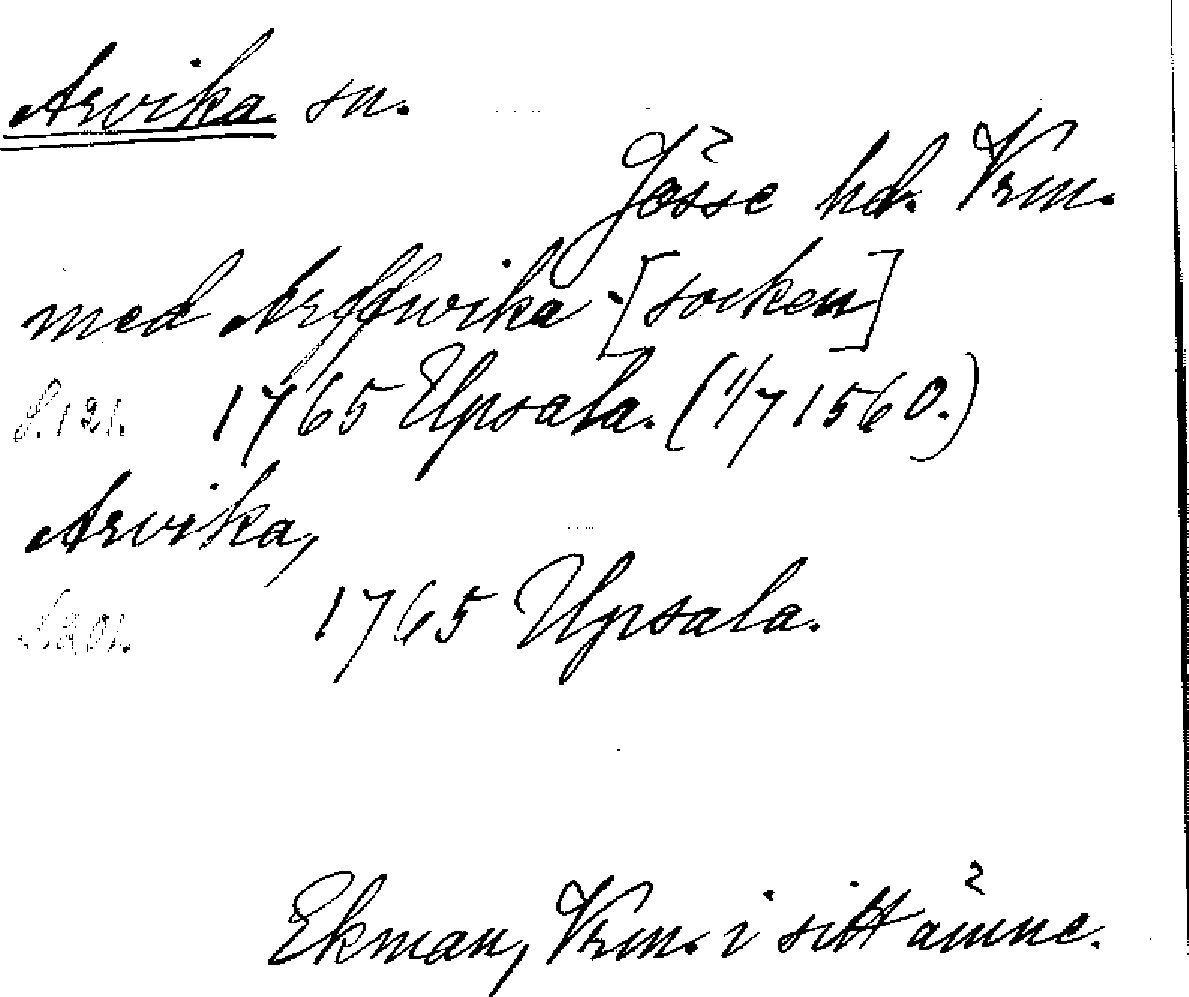 Arvika sn.
Jösse hd. Vrm.
med Arffwika [socken]
s. 121. 1765 Upsala. (1/7 1560.)
Arvika,
1765 Upsala.
Ekman, Vrm. i sitt ämne.